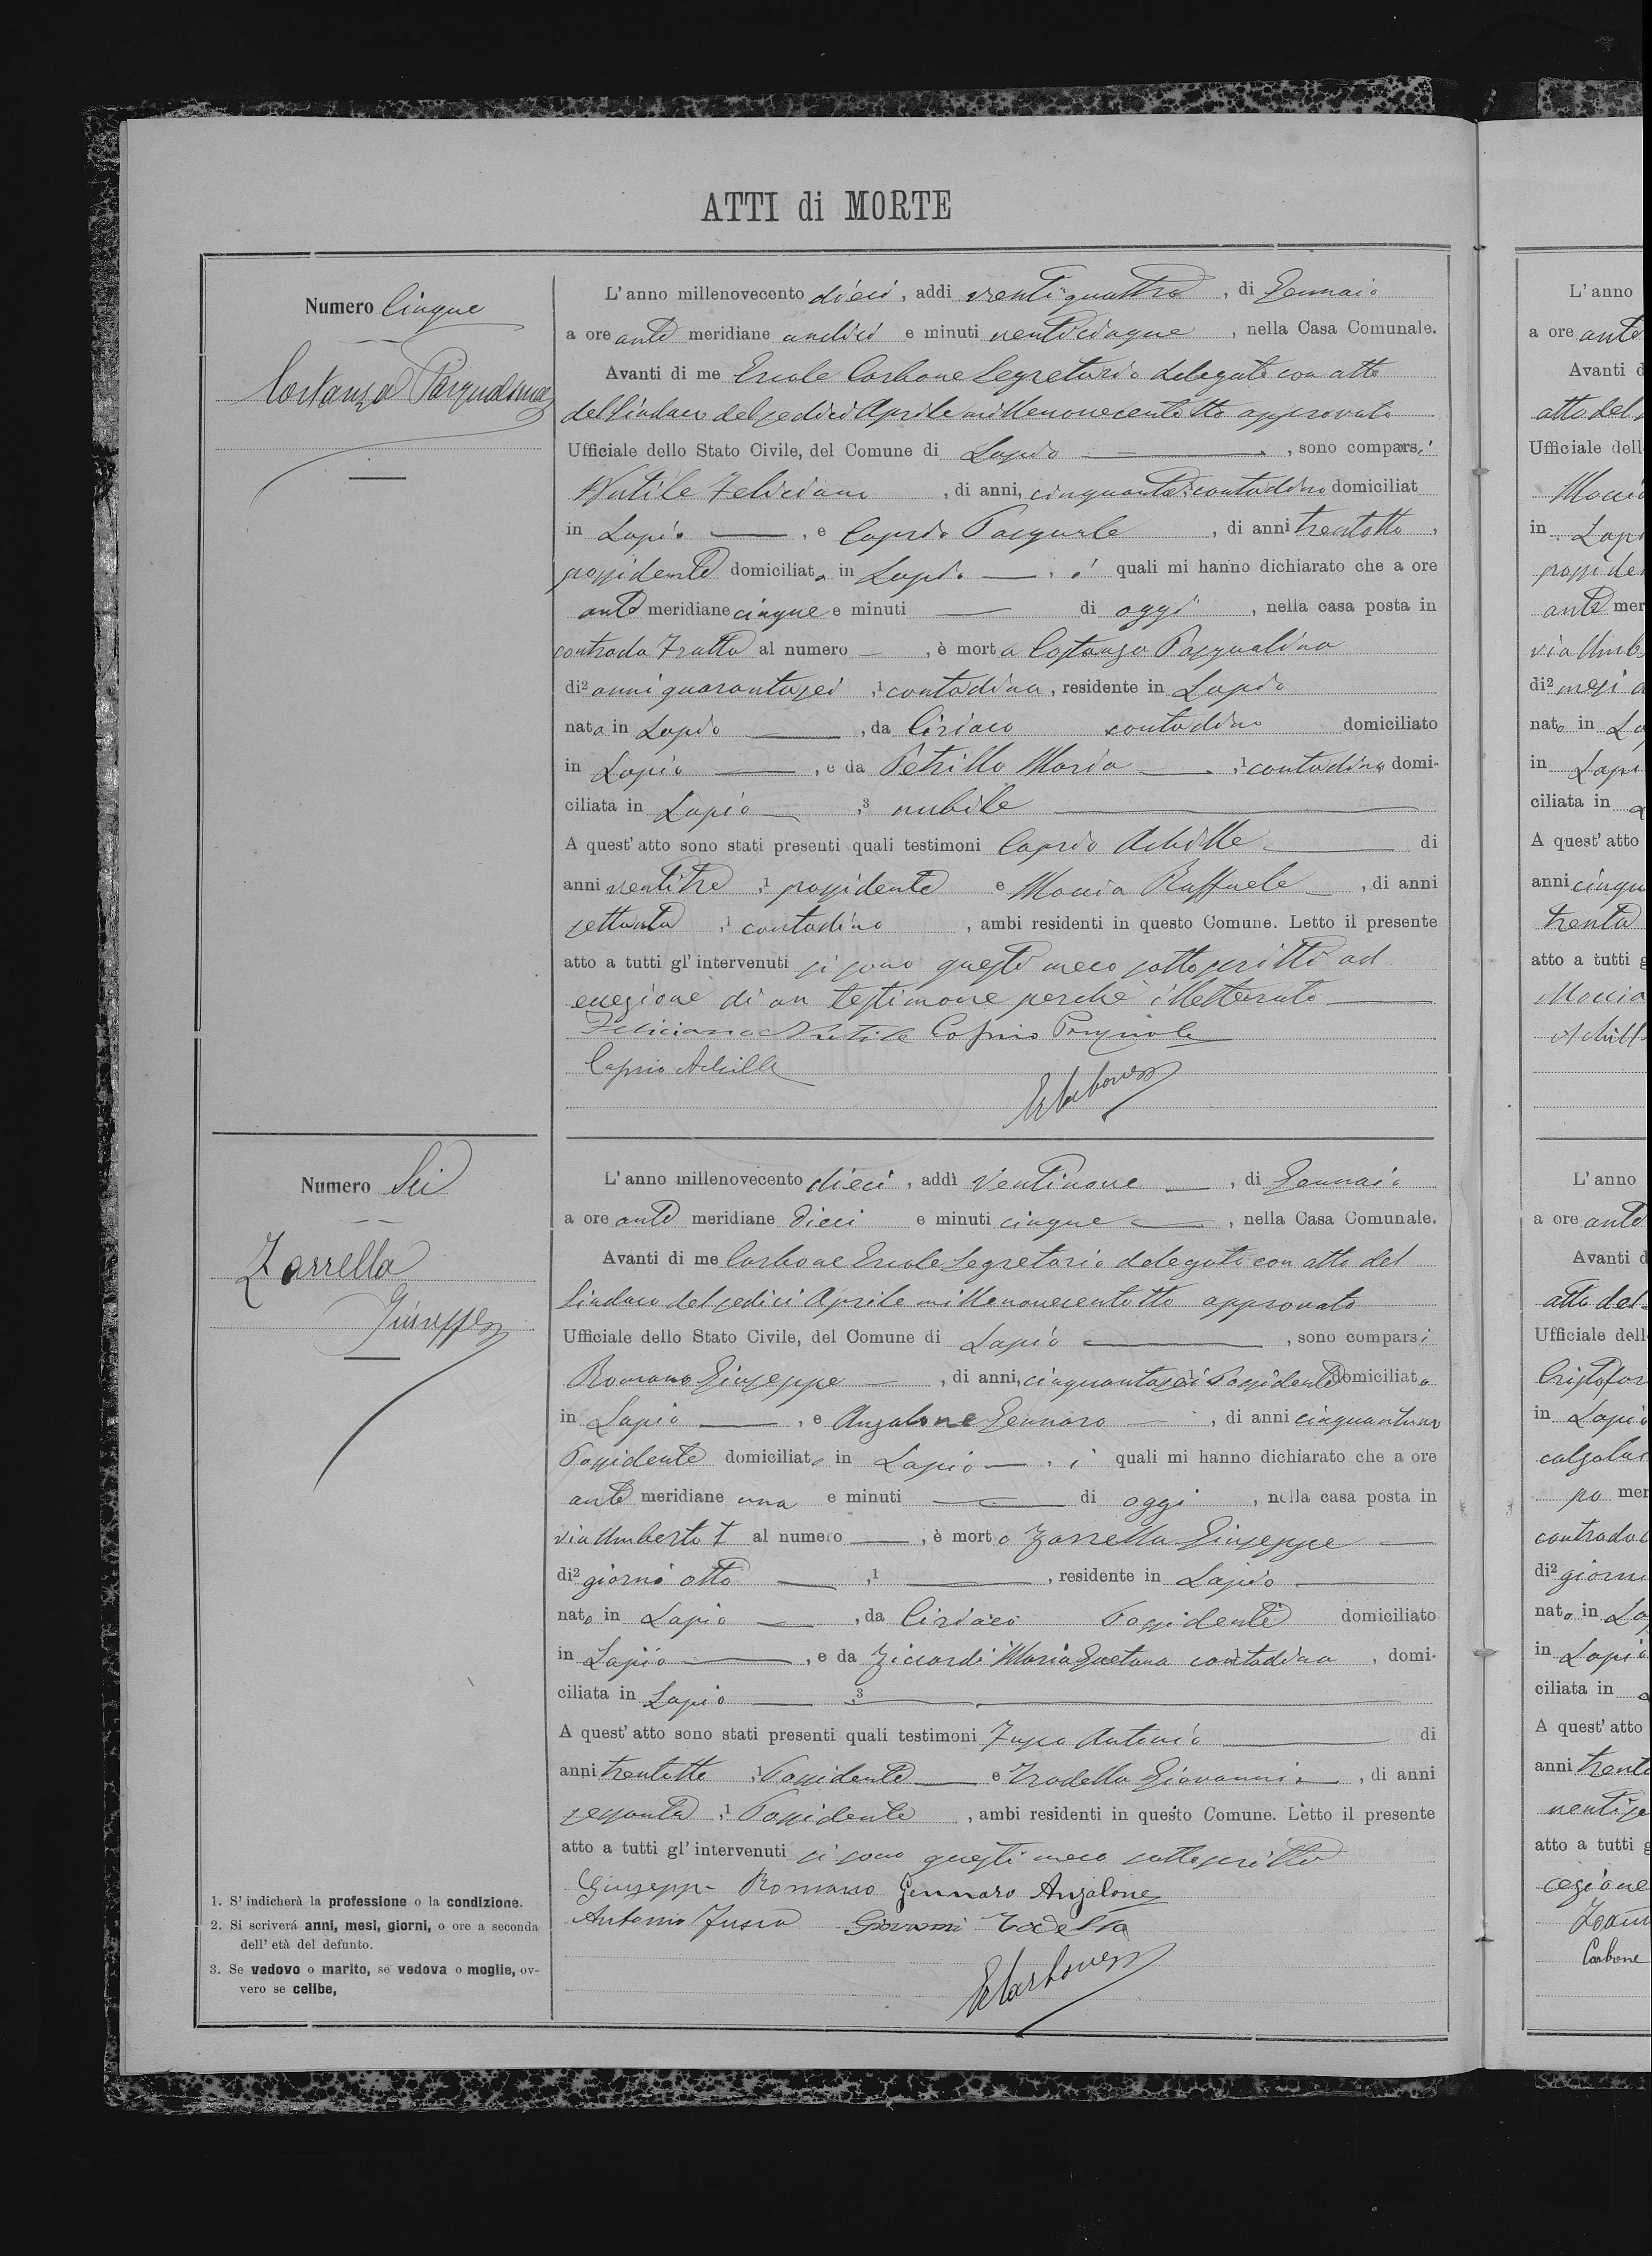 ATTI di MORTE
Numero Cinque
Costanza Pasqualina
L'anno millenovecento dieci, addi ventiquattro, di Gennaio
a ore ante meridiane undici e minuti venticinque, nella Casa Comunale.
Avanti di me Ercole Carbone Segretario delegato con atto
del Sindaco del sedici Aprile millenovecentotto approvato
Ufficiale dello Stato Civile, del Comune di Lapio, sono comparsi
Nutile Feliciano, di anni, cinquanta contadino domiciliat
in Lapio, e Caprio Pasquale, di anni trentotto,
possidente domiciliato in Lapio, i quali mi hanno dichiarato che a ore
ante meridiane cinque e minuti — di oggi, nella casa posta in
contrada Tratta al numero —, è morta Costanza Pasqualina
di2 anni quarantasei ,1 contadina, residente in Lapio
nata in Lapio —, da Ciriaco contadino domiciliato
in Lapio —, e da Petrillo Maria — ,1 contadina domi-
ciliata in Lapio — ,3 nubile —
A quest' atto sono stati presenti quali testimoni Caprio Achille — di
anni ventitre ,1 possidente e Moccia Raffaele —, di anni
settanta ,1 contadino, ambi residenti in questo Comune. Letto il presente
atto a tutti gl' intervenuti si sono questi meco sottoscritti ad
eccezione di un testimone perchè illetterato —
Feliciano Nutile Caprio Pasquale
Caprio Achille
ECarbone
Numero Sei
Zarrella
Giuseppe
L'anno millenovecento dieci, addì Ventinove —, di Gennaio
a ore ante meridiane dieci e minuti cinque —, nella Casa Comunale.
Avanti di me Carbone Ercole Segretario delegato con atto del
Sindaco del sedici Aprile millenovecentotto approvato
Ufficiale dello Stato Civile, del Comune di Lapio —, sono comparsi
Romano Giuseppe —, di anni, cinquantasei Possidente domiciliato
in Lapio —, e Anzalone Gennaro —, di anni cinquantuno
Possidente domiciliato in Lapio —, i quali mi hanno dichiarato che a ore
ante meridiane una e minuti — di oggi, nella casa posta in
via Umberto I al numero —, è morto Zarrella Giuseppe —
di2 giorni otto — ,1 —, residente in Lapio —
nato in Lapio —, da Ciriaco Possidente domiciliato
in Lapio —, e da Ziccardi Maria Gaetana contadina, domi-
ciliata in Lapio — ,3 —
A quest' atto sono stati presenti quali testimoni Antonio — di
anni trentotto ,1 Possidente — e Giovanni —, di anni
sessanta ,1 Possidente, ambi residenti in questo Comune. Letto il presente
atto a tutti gl' intervenuti si sono questi meco sottoscritti
Giuseppe Romano Gennaro Anzalone
Antonio Giovanni
ECarbone
1. S' indicherà la professione o la condizione.
2. Si scriverá anni, mesi, giorni, o ore a seconda
dell' età del defunto.
3. Se vedovo o marito, se vedova o moglie, ov-
vero se celibe,
L'anno
a ore ante
Avanti d
atto del
Ufficiale dell
in Lapi
ante mer
via Umb
di2 mesi
nato in La
in Lapi
ciliata in
A quest' atto
anni cinqu
trenta
atto a tutti g
Moccia
Achill
L'anno
a ore ante
Avanti d
atto del
Ufficiale dell
Cristofor
in Lapio
calzolai
po mer
contrada
di2 giorni
nato in La
in Lapio
ciliata in
A quest' atto
anni trent
atto a tutti g
cezione
Carbone